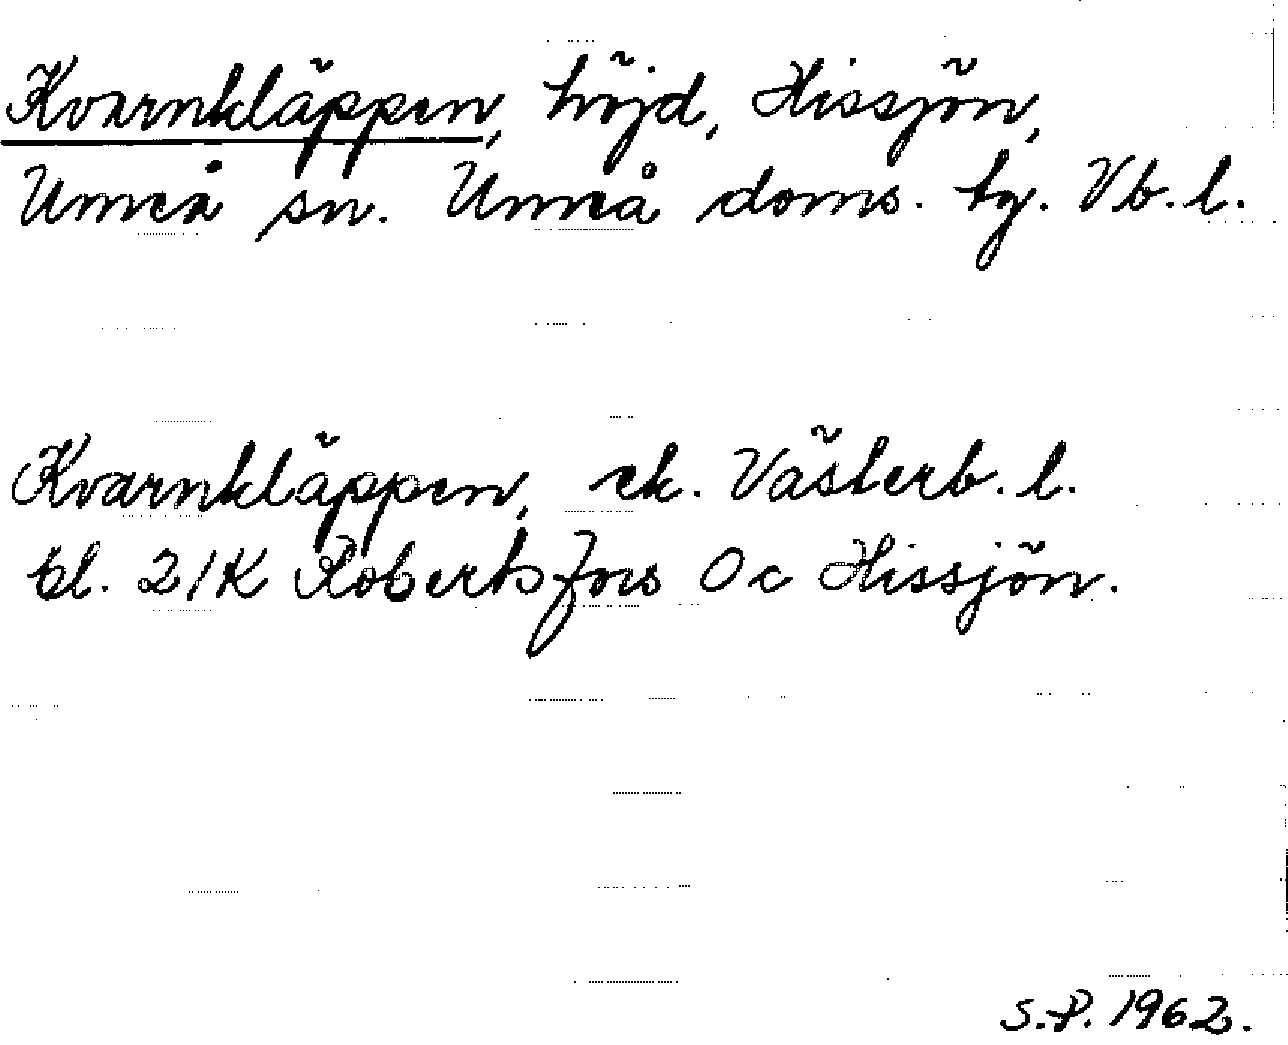 Kvarnkläppen, höjd, Hissjön,
Umeå sn. Umeå doms. tg. Vb. l.
Kvarnkläppen, ek. Västerb. l.
bl. 21K Robertsfors 0c Hissjön.
S.P. 1962.